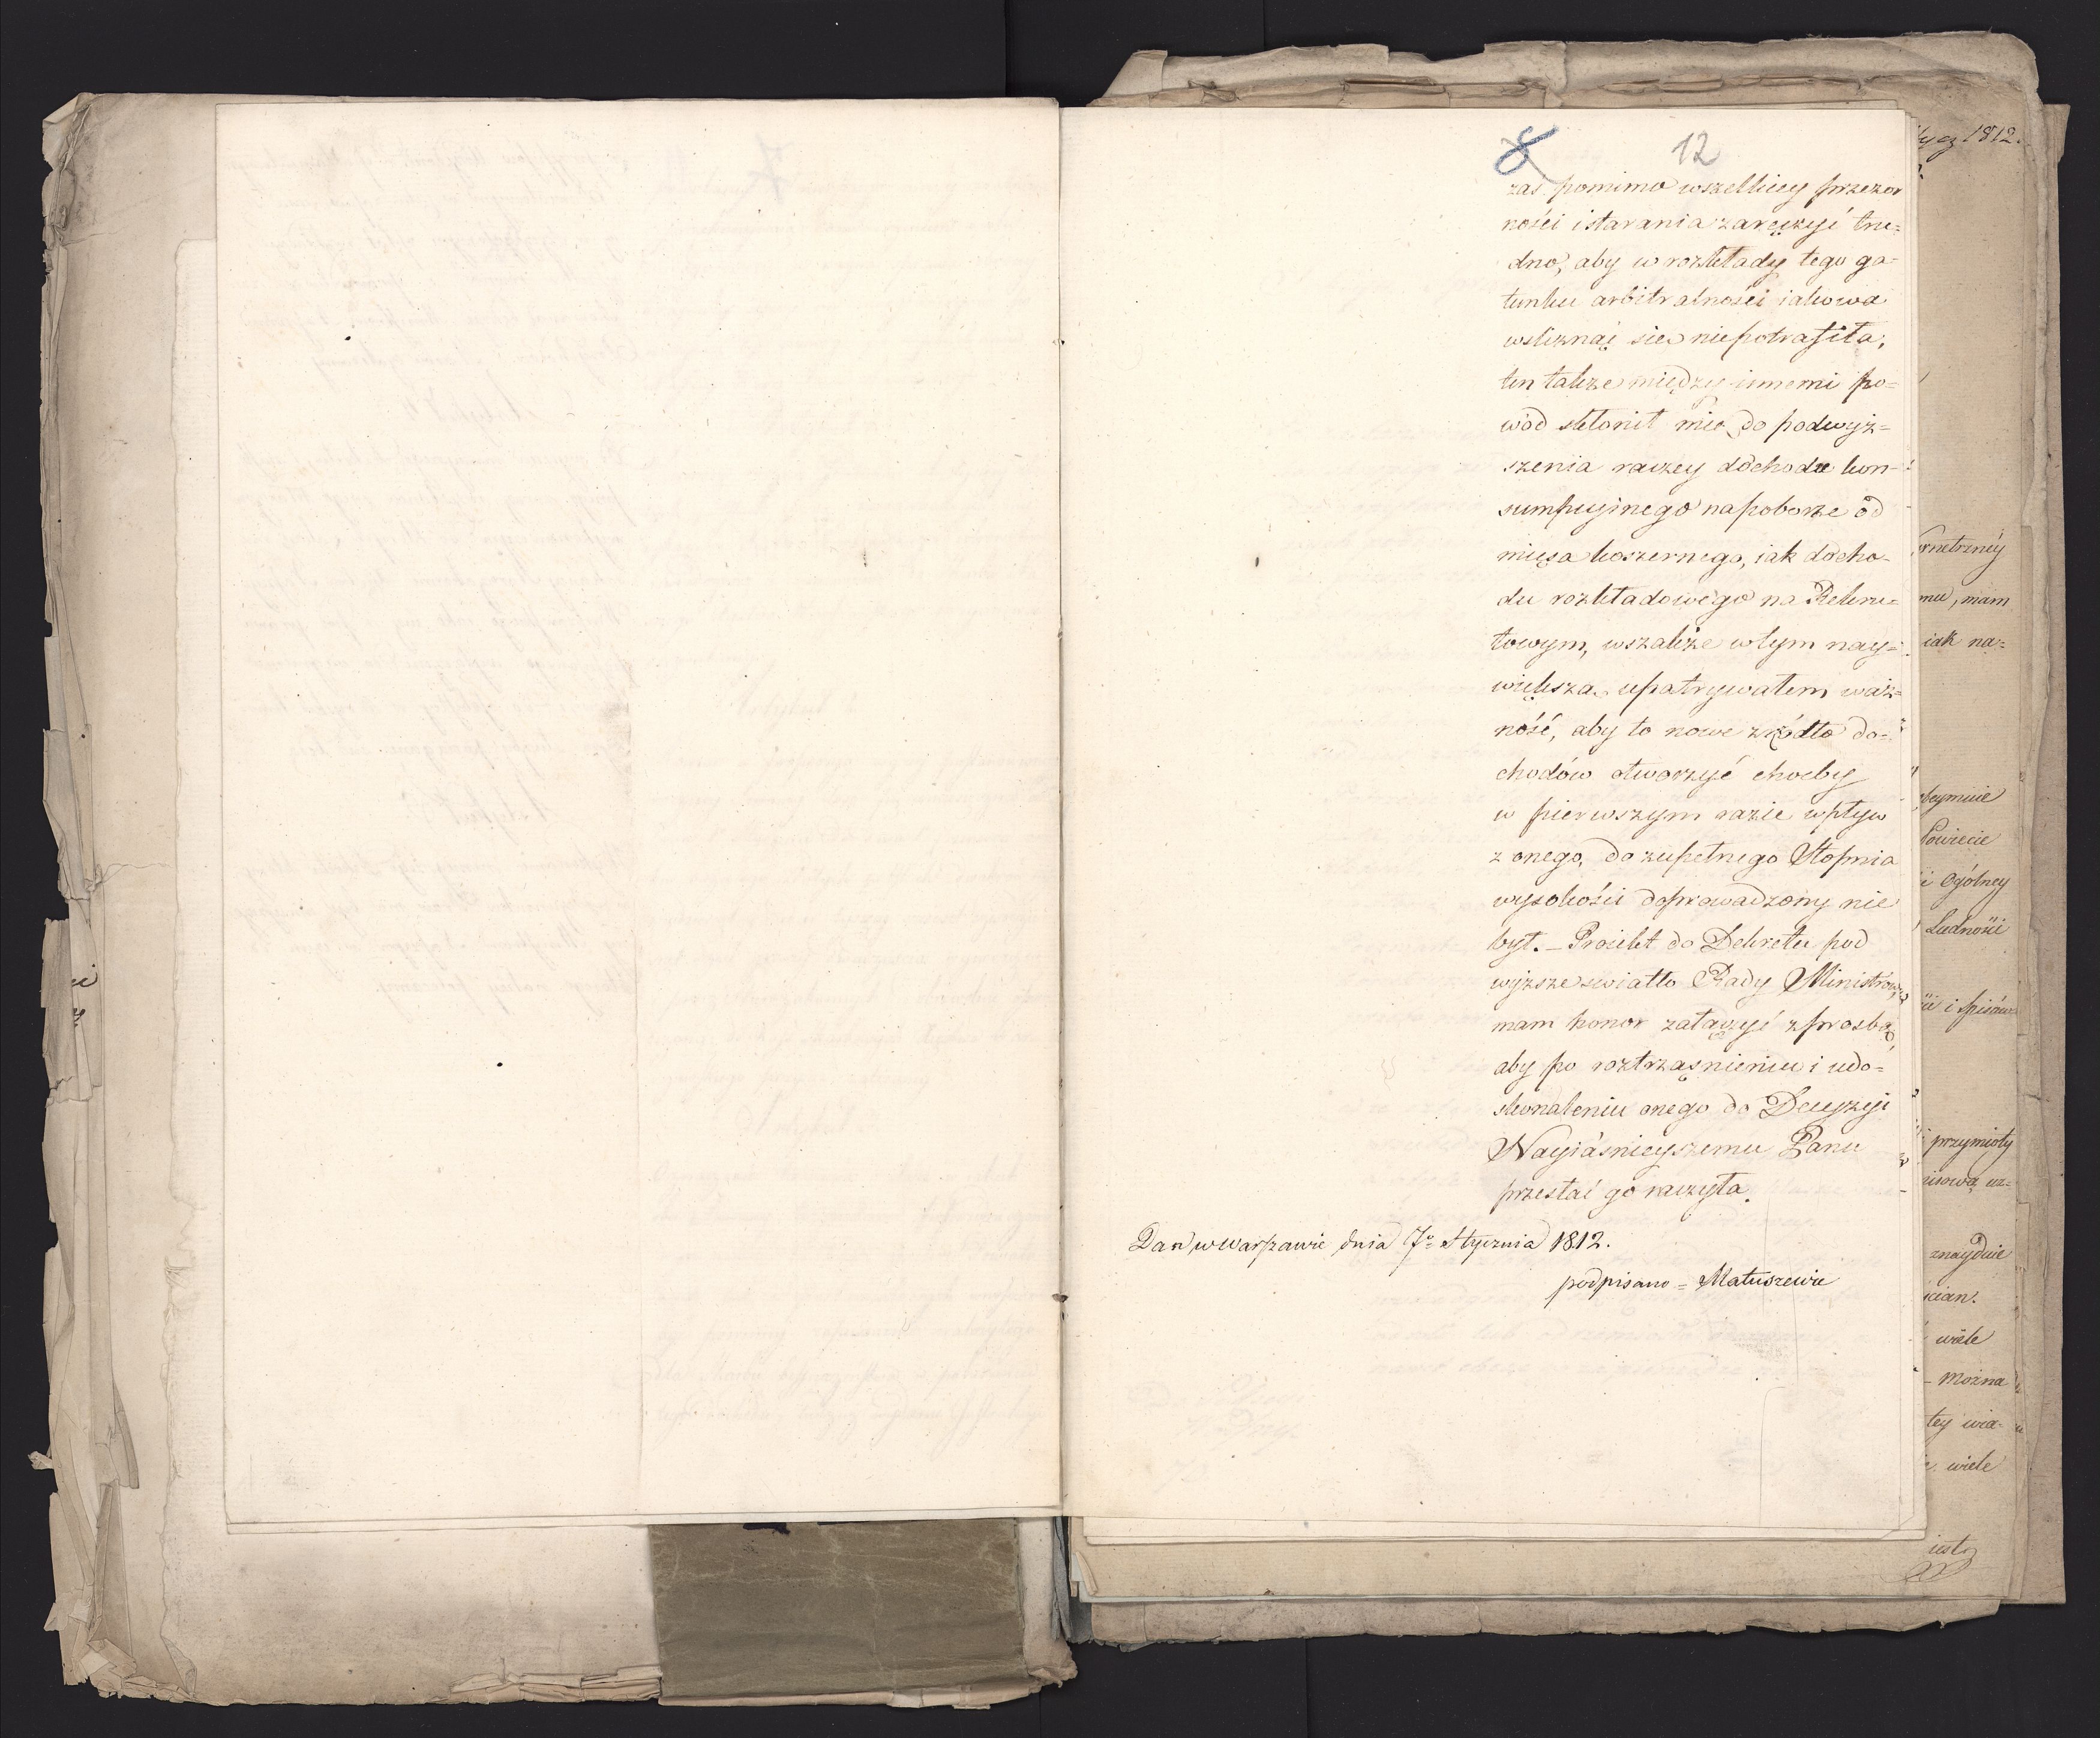 8 12
zaś pomimo wszelkiey przezor
ności i starania zaręczyć tru=
dno, aby w rozkłady tego ga-
tunku arbitralności iakowa
wśliznąć się niepotrafiła,
ten także między innemi po=
wód skłonił mię do podwyż=
szenia raczey dochodu kon-
sumpcyinego na poborze od
mięsa koszernego, iak docho-
du rozkładowego na Rekru=
towym, wszakże w tym nay=
większą upatrywałem waż=
ność, aby to nowe zrzódło do=
chodów otworzyć choćby
w pierwszym razie wpływ
z onego, do zupełnego Stopnia
wysokości doprowadzony nie
był. – Proiekt do Dekretu pod
wyższe swiatło Rady Ministrów,
mam honor załączyć z prosbą,
aby po roztrząśnieniu i udo=
skonaleniu onego do Decyzyi
Nayiáśnieyszemu Panu
przesłać go raczyła.
Dan w Warszawie dnia 7º Stycznia 1812.
podpisano = Matuszewic
1812.
mu, mam
iak na=
beymuie
Powiecie
Ogólney
Ludności
i spisów
przymioty
znayduie
wiele
– można
tey wia-
wiele